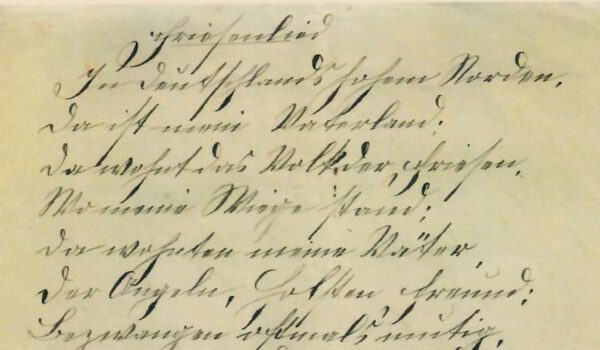 Friesenlied
In Deutschlands hohem Norden,
Da ist mein Vaterland;
Da wohnt das Volk der Friesen,
Wo meine Wiege stand;
Da wohnten meine Väter,
Der Angeln, Holsten Freund;
Bezwangen oftmals mutig,